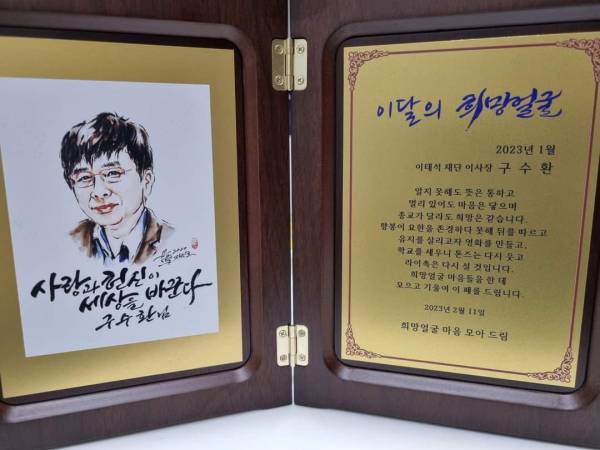 사랑과 헌신이
세상을 바꾼다
구수환님
이달의 희망얼굴
2023년 1월
이태석 재단 이사장 구 수 환
알지 못해도 뜻은 통하고
멀리 있어도 마음은 닿으며
종교가 달라도 희망은 같습니다.
향봉이 요한을 존경하다 못해 뒤를 따르고
유지를 살리고자 영화를 만들고,
학교를 세우니 톤즈는 다시 웃고
라이촉은 다시 설 것입니다.
희망얼굴 마음들을 한 데
모으고 기울여 이 패를 드립니다.
2023년 2월 11일
희망얼굴 마음 모아 드림